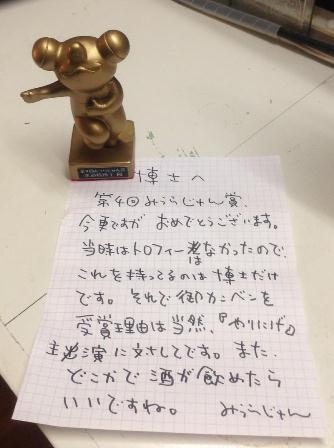 博士へ
第4回みうらじゅん賞、
今更ですが おめでとうございます。
当時はトロフィーはなかったので
これを持ってるのは博士だけ
です。それで御カンベンを
受賞理由は当然、『やりにげ』
主演に対してです。また、
どこかで酒が飲めたら
いいですね。 みうらじゅん